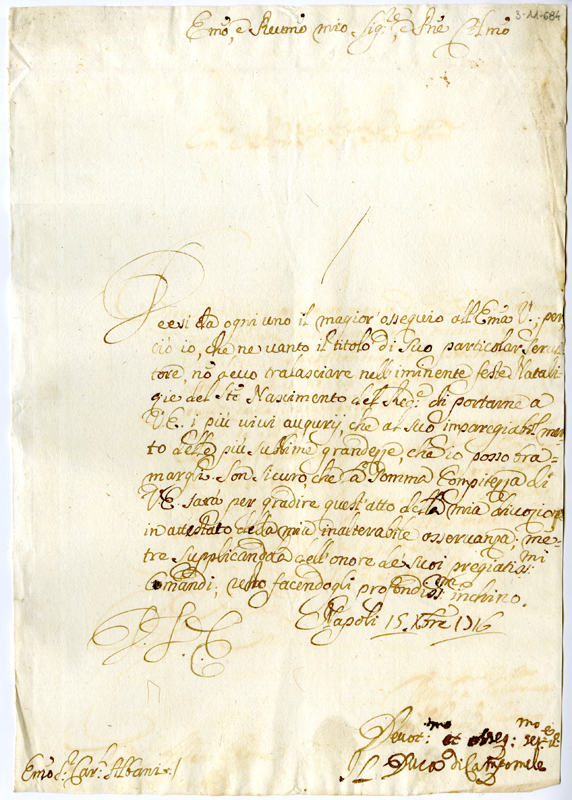 3-11-684
Emo, e Revmo mio Sigre, e Pne Colmo
Devesi da ogni uno il magior ossequio all Emza V.; per
ciò io, che ne vanto il titolo di Suo particolar Servi
tore, nò posso tralasciare nell'iminente feste Natali
zie del Sto Nascimento del Redre di portarne a
V.E. i più vivi augurij, che al Suo impareggiabil meri
to delle più sublime grandezze, che io posso tra-
margli. Son sicuro, che la Somma Compitezza di
V.E. sarà per gradire quest'atto della mia divozione
in attestato della mia inalterabile osservanza; men
tre supplicandola dell'onore de' suoi pregiatismi
Comandi, resto facendogli profondisma inchino.
Napoli 15 Xbre 1716
V. E.
Devotmo et obligmo Serre
Il Duca di Campomele
Emo Sr Carl Albani